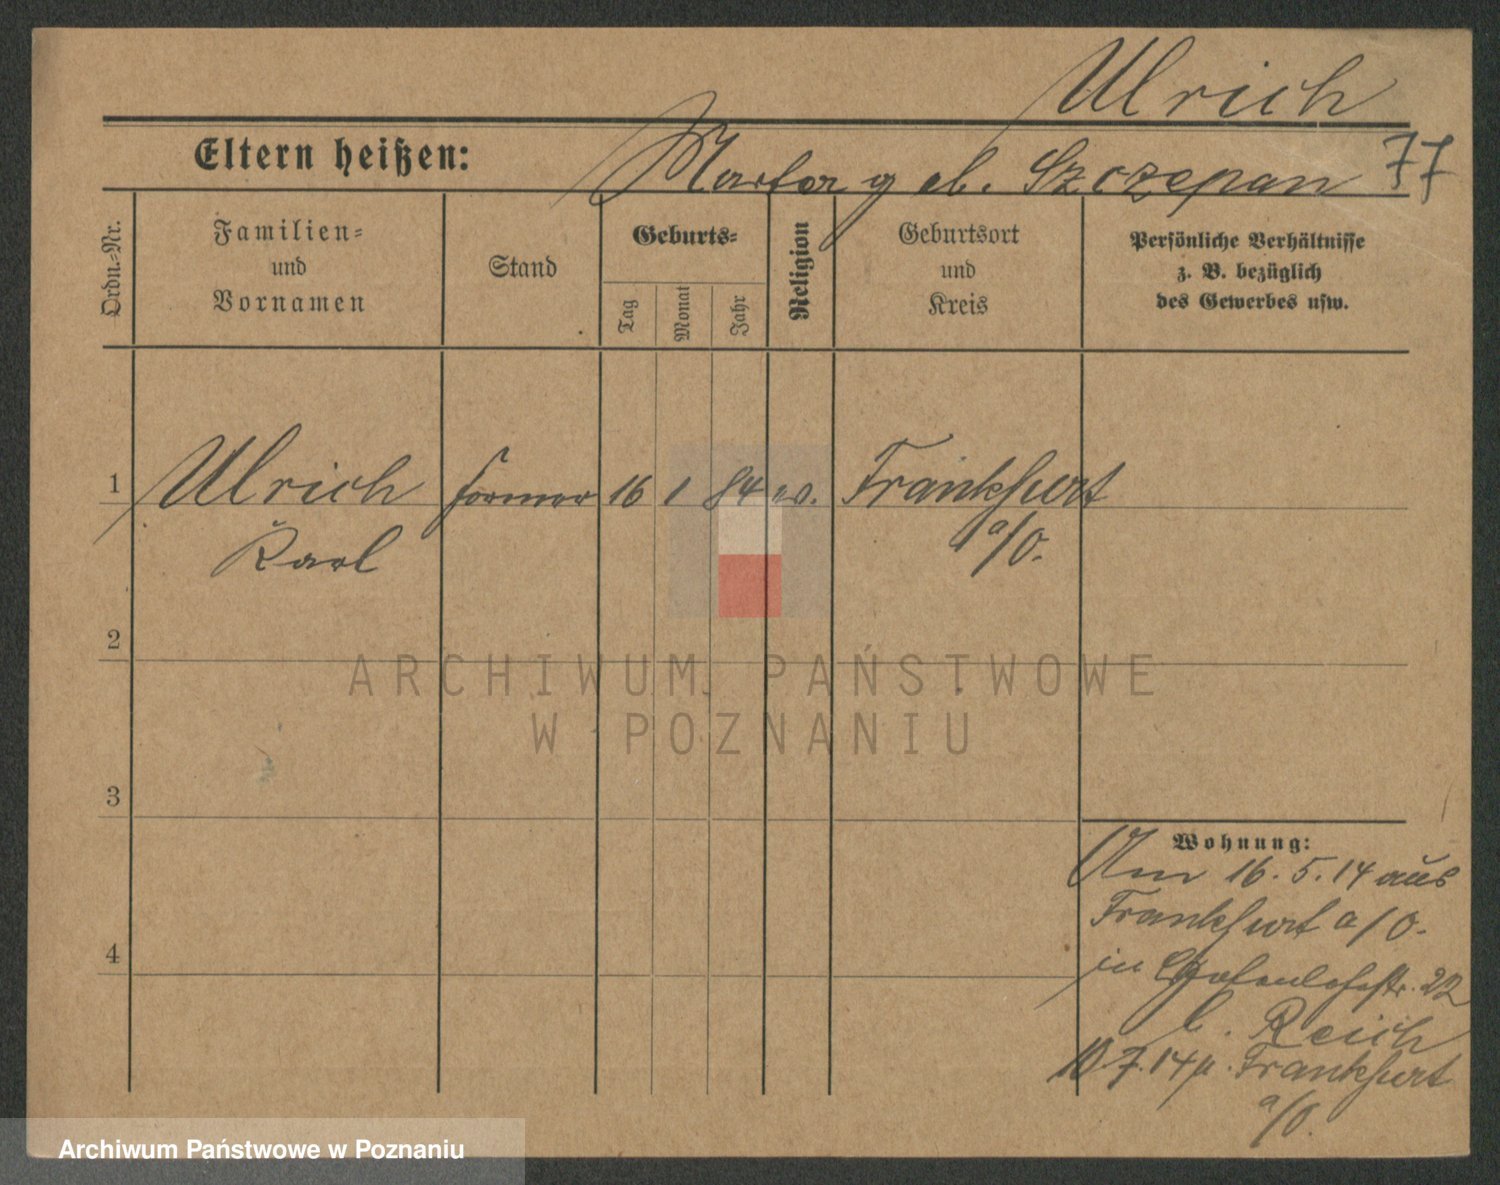 Ulrich
Eltern heißen:
Marta geb. Szczepan
77
Ordn.-Nr.
Familien-
und
Vornamen
Stand
Geburts-
Tag
Monat
Jahr
Religion
Geburtsort
und
Kreis
Persönliche Verhältnisse
z. B. bezüglich
des Gewerbes usw.
1
Ulrich
Former
16
1
84
ev.
Frankfurt
Karl
a/O.
2
ARCHIWUM PAŃSTWOWE
W POZNANIU
3
Wohnung:
Am 16.5.14 aus
Frankfurt a/O.
4
in
22
b. Reich
10.7.14 n. Frankfurt
a/O.
Archiwum Państwowe w Poznaniu